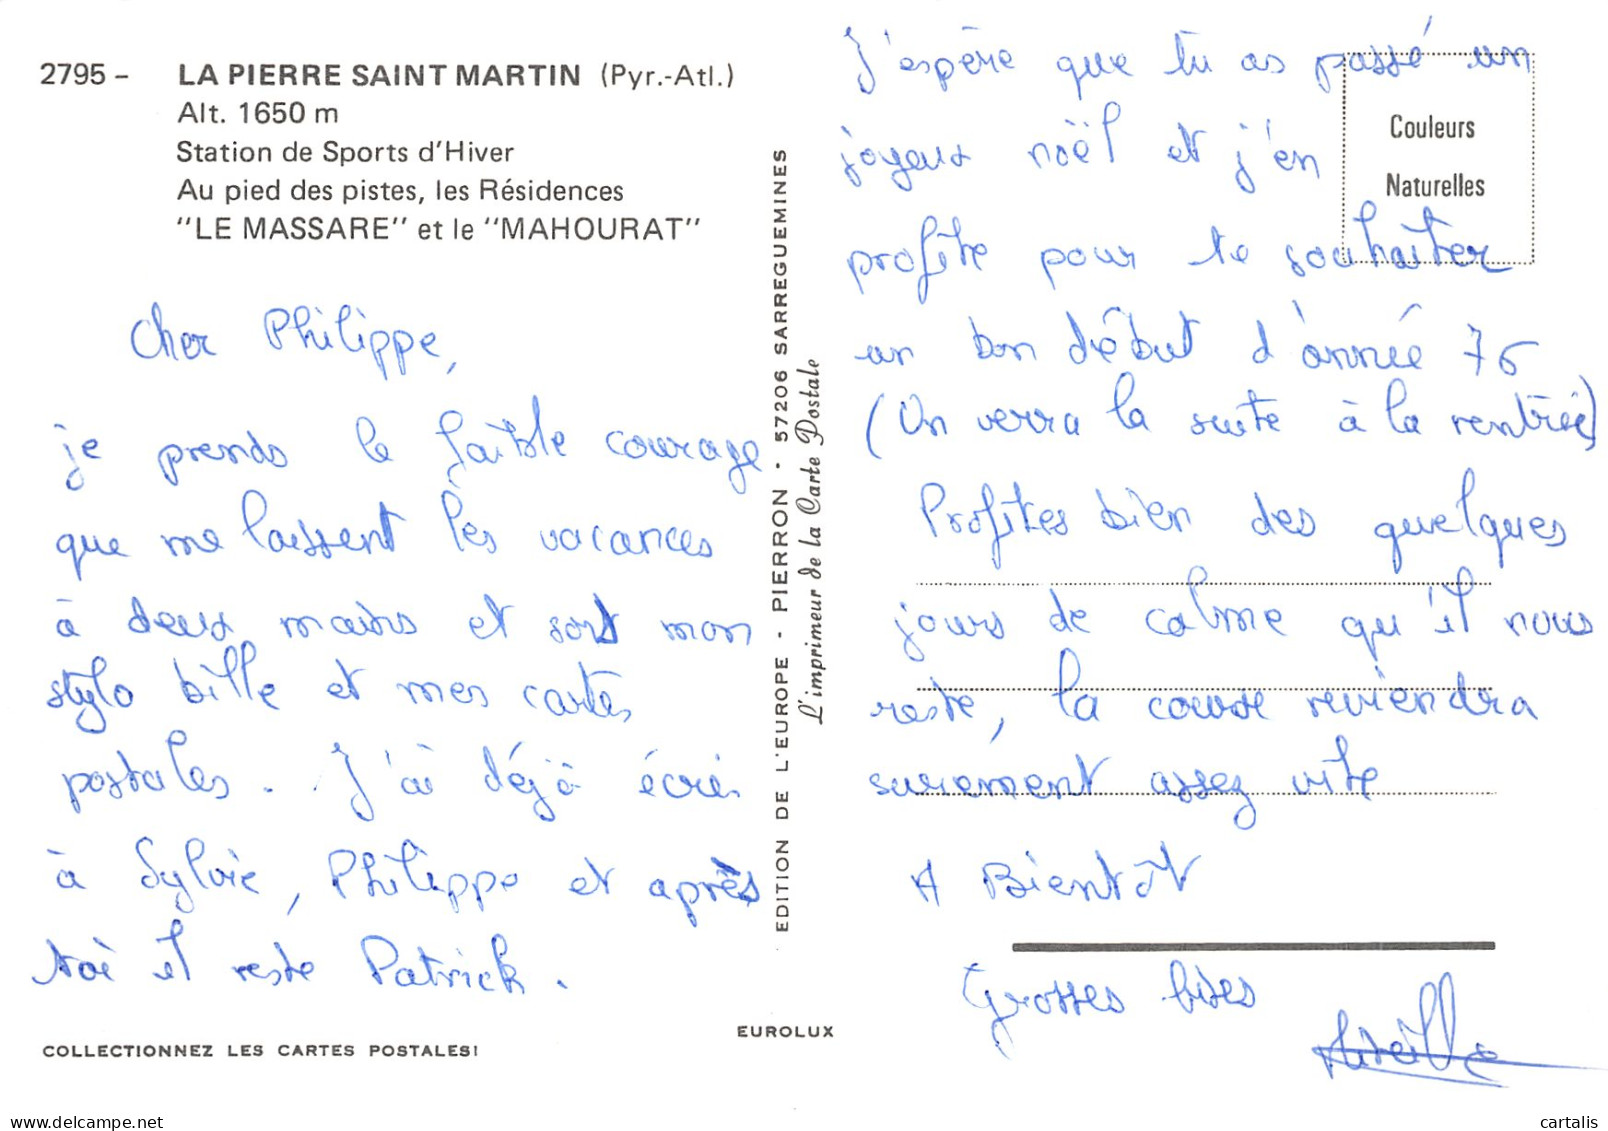 2795 - LA PIERRE SAINT MARTIN (Pyr.-Atl.)
Alt. 1650 m
Station de Sports d'Hiver
Au pied des pistes, les Résidences
"LE MASSARE" et le "MAHOURAT"
Cher Philippe,
je prends le faible courage
que me laissent les vacances
à deux mains et sors mon
stylo bille et mes cartes
postales. J'ai déjà écris
à Sylvie, Philippe et après
toi il reste Patrick.
COLLECTIONNEZ LES CARTES POSTALES!
EDITION DE L'EUROPE - PIERRON - 57206 SARREGUEMINES
L'imprimeur de la Carte Postale
EUROLUX
Couleurs
Naturelles
J'espère que tu as passé un
joyeux noël et j'en
profite pour te souhaiter
un bon début d'année 76
(On verra la suite à la rentrée)
Profites bien des quelques
jours de calme qu'il nous
reste, la course reviendra
surement assez vite
A Bientôt
Grosses bises
Mireille
cartalis
www.delcampe.net